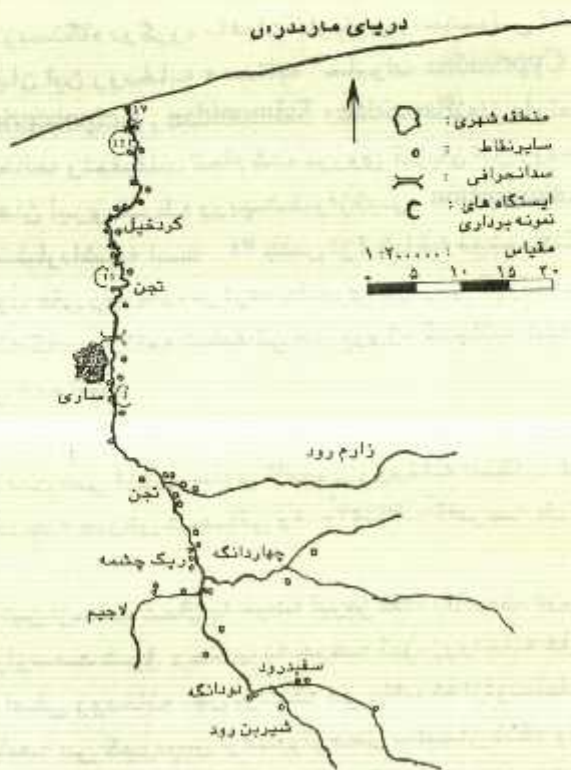 دریای مازندران
منطقه شهری :
سایر نقاط :
سد انحرافی :
ایستگاه های :
نمونه برداری
مقیاس :
۰ ۵ ۱۰ ۱۵ ۲۰
۱۷
کردخیل
تجن
ساری
زارم رود
تجن
چهاردانگه
ریک چشمه
لاجیم
سفیدرود
دودانگه
شیرین رود